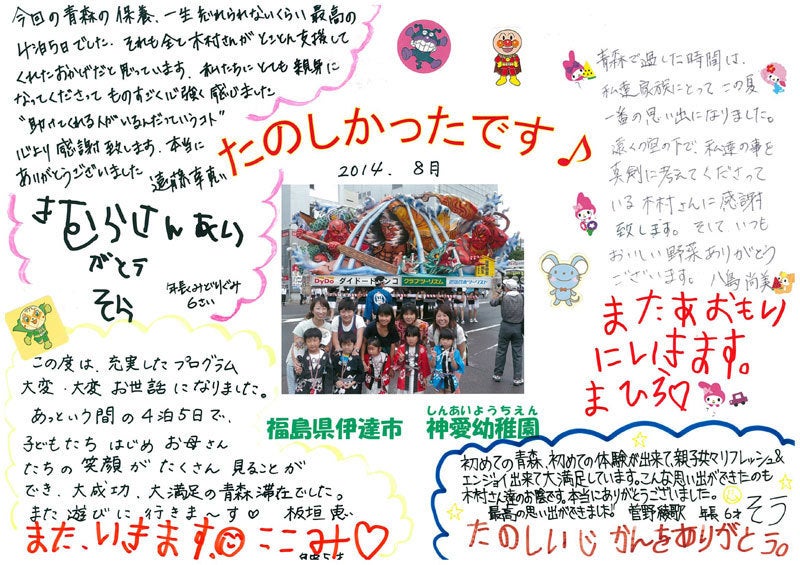 今回の青森の保養、一生忘れられないくらい最高の
4泊5日でした。それも全て木村さんがとことん支援して
くれたおかげだと思っています。私たちにとても親身に
なってくださってものすごく心強く感じました
"助けてくれる人がいるんだっていうコト"
心より感謝致します。本当に
ありがとうございました
きむらさんあり
がとう
そら
年長くみどりぐみ
6さい
たのしかったです♪
2014. 8月
青森で過した時間は、
私達家族にとってこの夏
一番の思い出になりました。
遠くの空の下で、私達の事を
真剣に考えてくださって
いる木村さんに感謝
致します。そしていつも
おいしい野菜ありがとう
ございます。 八島尚美
またあおもり
にいきます。
まひろ♡
DyDo ダイドードリンコ クラブツーリズム 近畿日本ツーリスト
この度は、充実したプログラム
大変・大変お世話になりました。
あっという間の4泊5日で、
子どもたちはじめお母さん
たちの笑顔がたくさん見ることが
でき、大成功、大満足の青森滞在でした。
また遊びに行きま〜す♡ 板垣恵
また、いきます。ここみ♡
福島県伊達市 神愛幼稚園
しんあいようちえん
初めての青森、初めての体験が出来て、親子共々リフレッシュ&
エンジョイ出来て大満足しています。こんな思い出ができたのも
木村さん達のお陰です。本当にありがとうございました。
最高の思い出ができました! 菅野綾歌 年長 6才 そう
たのしいじかんをありがとう。